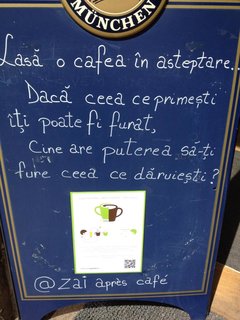 MÜNCHEN
Lasă o cafea în așteptare...
Dacă ceea ce primești
îți poate fi furat,
Cine are puterea să-ți
fure ceea ce dăruiești?
@ Zai après café